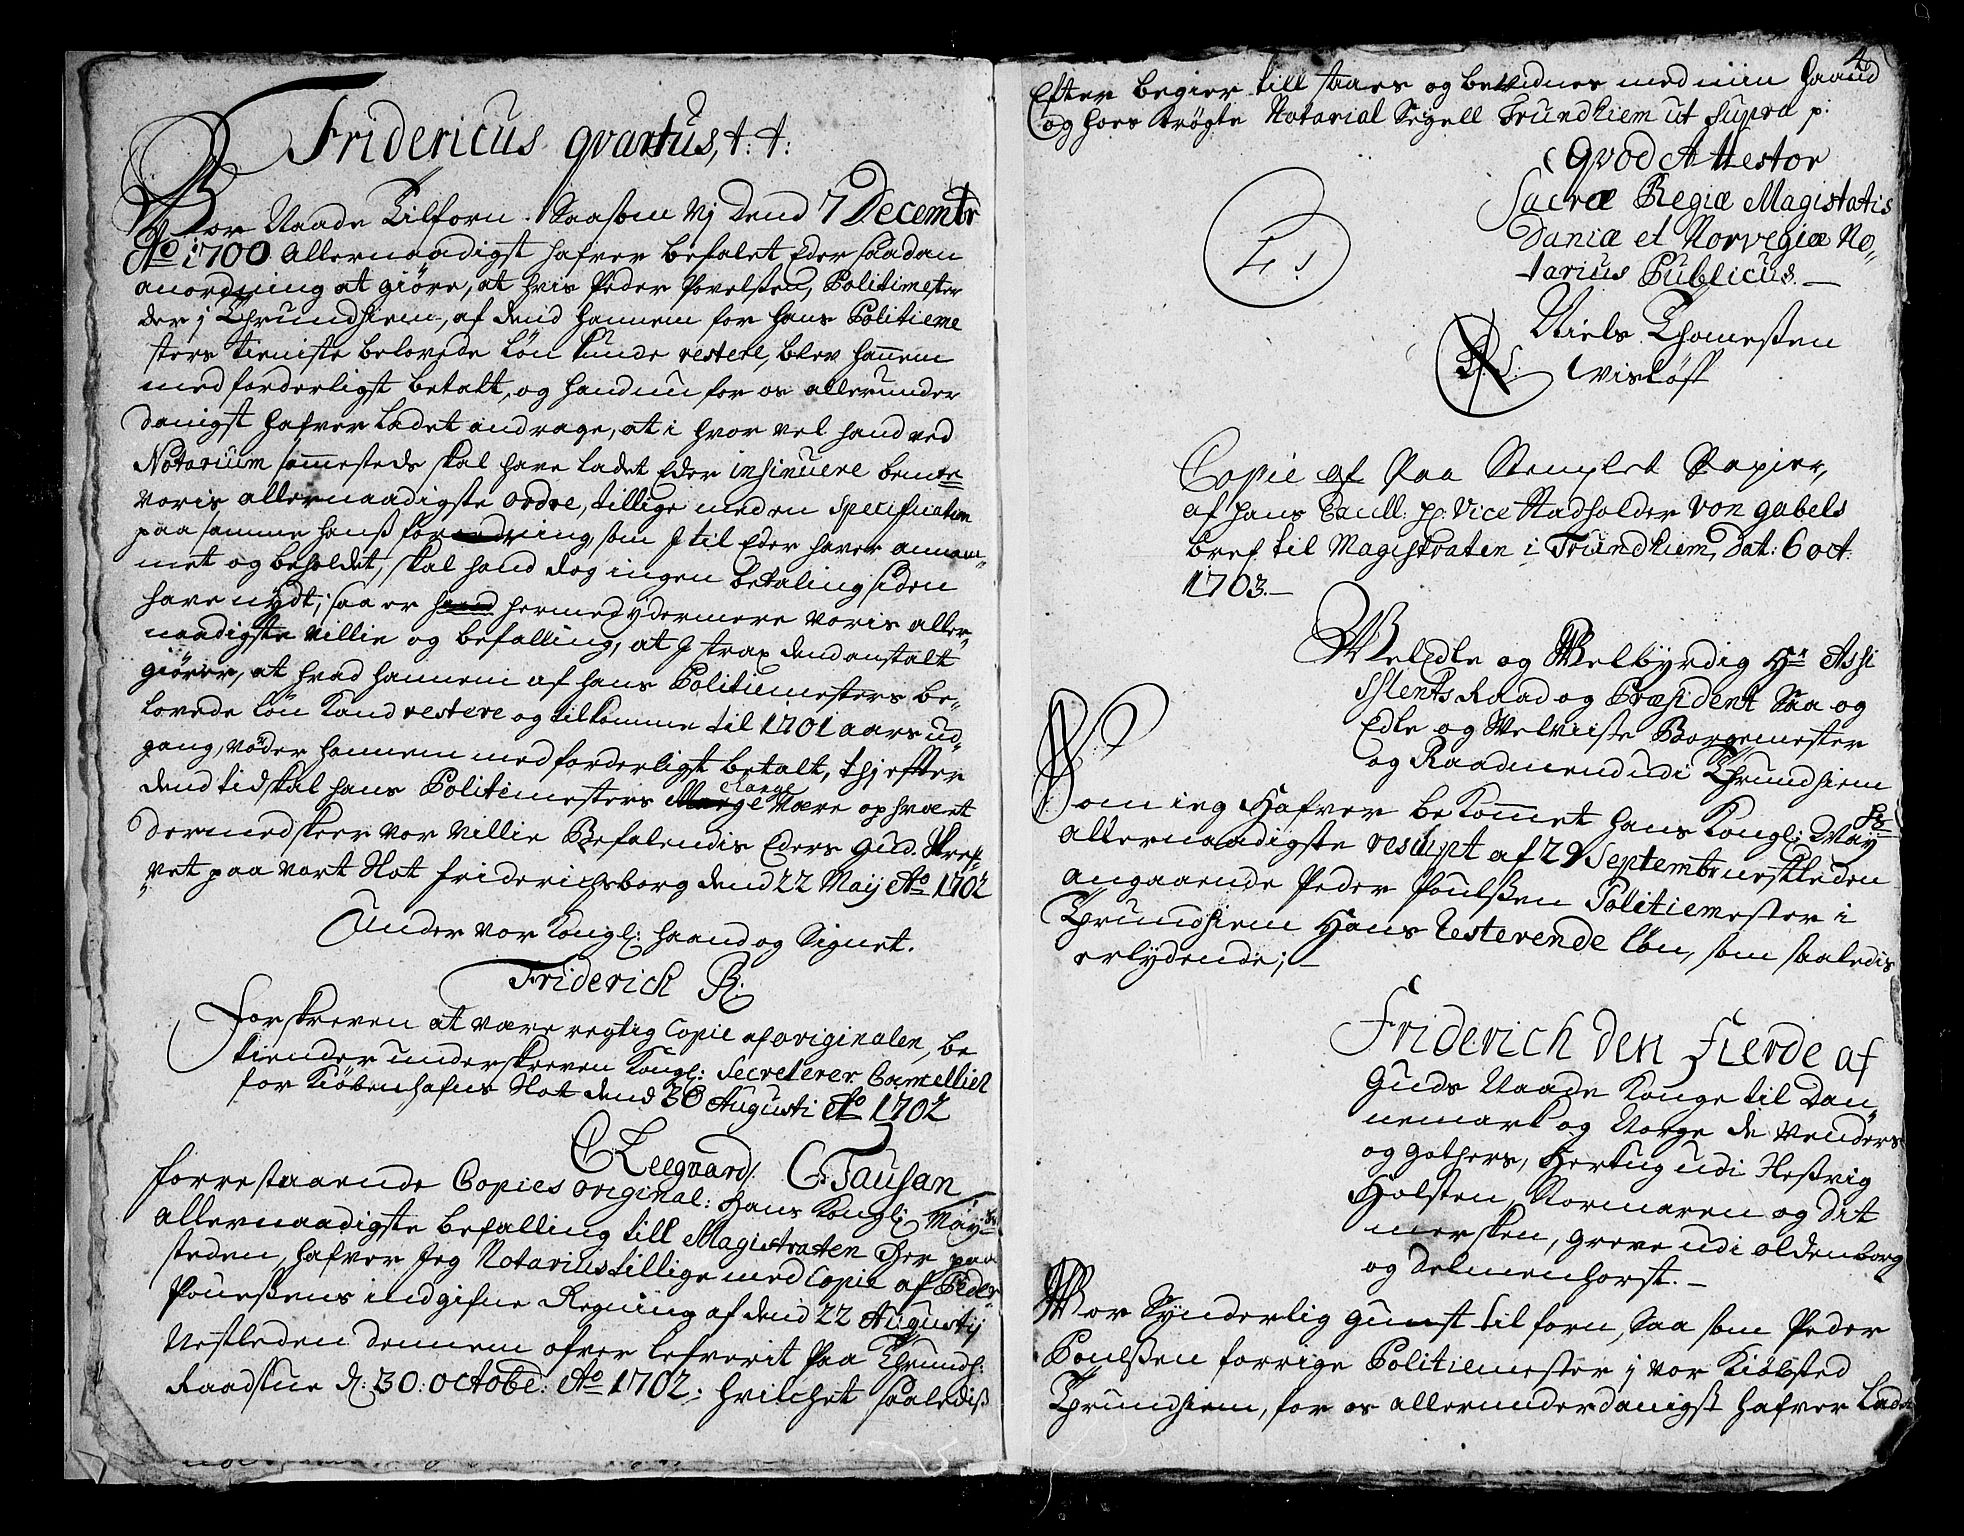 Fridericus qvartus, t: t:
Vor Naade Tilforn. Saasom Vj dend 7 Decembr
Ao 1700 allernaadigst hafver befalet Eder saadan
anordning at giöre, at hvis Peder Povelsen, Politimester
der j Thrundhiem, af dend hannem for hans Politieme
sters tieniste belovede lön kunde restere, blev hannem
med forderligst betalt, og hand nu for os allerunder
danigst hafver ladet andrage, at i hvor vel hand ved
Notarium sammesteds skal have ladet Eder insinuere bemte
voris allernaadigste ordre, tillige med en Specification
paa samme hans fordring, som J til Eder haver annam„
met og beholdet, skal hand dog ingen betaling siden
have nydt; saa er hand hermed ydermere voris aller„
naadigste villie og befalling, at J strax dend anstalt
giörer, at hvad hannem af hans Politiemesters be„
lovede lön kand restere og tilkomme til 1701 aars ud„
gang, vörder hannem med forderligt betalt, thj effter
dend tid skal hans Politimesters Charge være ophævet
dermed skeer vor villie Befalendis Eders Gud. Skref„
vet paa vort Slot Friderichsborg dend 22 Maij Ao 1702
Under vor Kongl: haand og Signet.
Friderich R:
Forskreven at være regtig Copie af originalen, be
kiender underskreven Kongl: Secreterer Cancelliet
for Kiöbenhafns Slot dend 30 Augusti Ao 1702
C: Leegaard/. C: Tausan
forrestaaende Copies original: Hans Kongl: May:ts
allernaadigste befalling till Magistraten her paa
steden, hafver Jeg Notarius tillige med Copie af Peder
Pouelsens indgifne Regning af dend 22 Augustij
Nestleden dennem ofver lefverit paa Thrundh:
Raadstue d: 30: octobr: Ao 1702; hvilchet saalediß
Efter begier till staaes og bevidnes med min haand
og hoes trögte Notarial Segell Trundhiem ut supra p:
Qvod Attestor
Sacræ Regiæ Magistatis
Daniæ et Norvegiæ No„
tarius Publicus. —
L S
Niels Thomesßen
Wislöff
Copie af Paa Stemplet Papier,
af hans Excell: H: Vice Stadholder von gabels
bref til Magistraten i Trundhiem, Dat: 6 oct:
1703. —
WelEdle og Welbyrdig Hr Assi
stents Raad og Præsident Saa og
Edle og Welviise Borgemester
og Raadmend udi Thrundhiem
Som ieg Hafver bekommet hans Kongl: May:ts
allernaadigste rescript af 29 Septembr: nestleden
angaaende Peder Poulßen Politiemester i
Thrundhiem Hans Resterende lön, som saaledis
erlydende; —
Friderich den Fierde af
Guds Naade Konge til Dan„
nemark og Norge de Venders
og Gothers, Hertug udi Slesßvig
Holsten, Stormaren og Dit
mersken, Greve udi oldenborg
og Delmenhorst. —
Vor Synderlig Gunst til forn, Saa som Peder
Poulßen forrige Politiemester j vor Kiöbsted
Thrundhiem, for os allerunderdanigst hafver Ladet